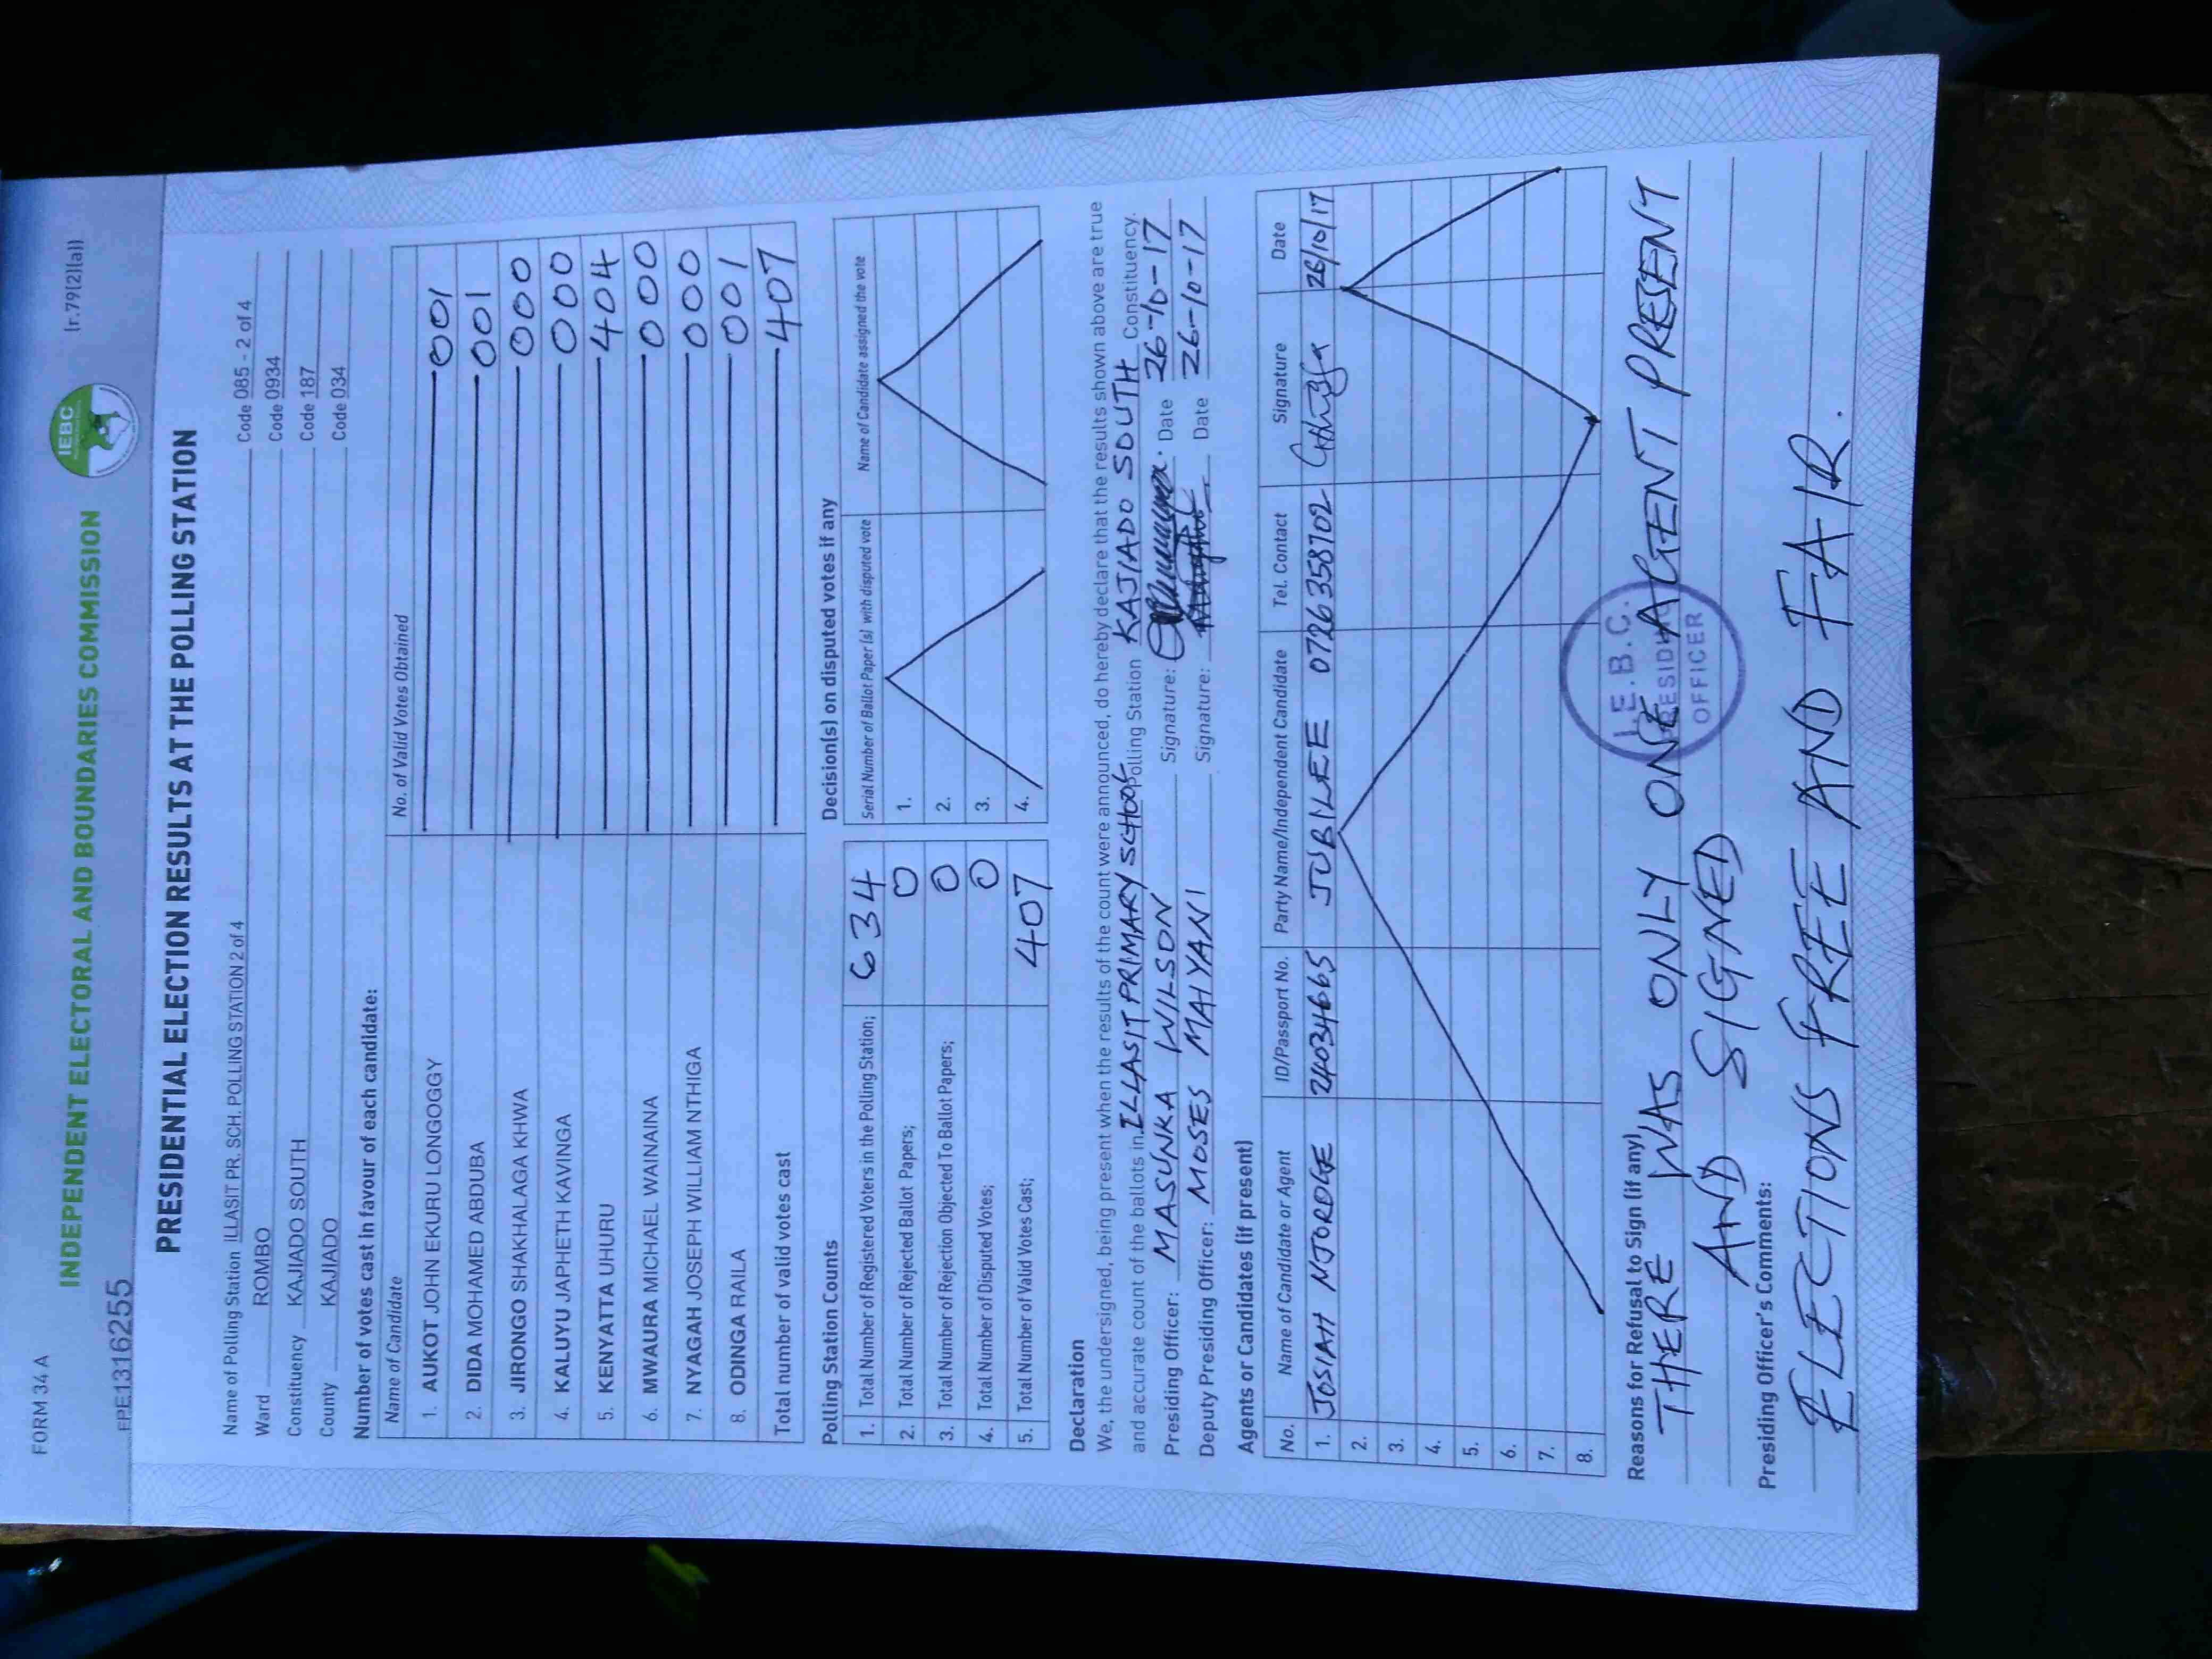 FORM 34 A
INDEPENDENT ELECTORAL AND BOUNDARIES COMMISSION
IEBC
(r.79(2)(a))
EPE1316255
PRESIDENTIAL ELECTION RESULTS AT THE POLLING STATION
Name of Polling Station ILLASIT PR. SCH. POLLING STATION 2 of 4 Code 085 - 2 of 4
Ward ROMBO Code 0934
Constituency KAJIADO SOUTH Code 187
County KAJIADO Code 034
Number of votes cast in favour of each candidate:
Name of Candidate No. of Valid Votes Obtained
1. AUKOT JOHN EKURU LONGOGGY 001
2. DIDA MOHAMED ABDUBA 001
3. JIRONGO SHAKHALAGA KHWA 000
4. KALUYU JAPHETH KAVINGA 000
5. KENYATTA UHURU 404
6. MWAURA MICHAEL WAINAINA 000
7. NYAGAH JOSEPH WILLIAM NTHIGA 000
8. ODINGA RAILA 001
Total number of valid votes cast 407
Polling Station Counts
1. Total Number of Registered Voters in the Polling Station; 634
2. Total Number of Rejected Ballot Papers; 0
3. Total Number of Rejection Objected To Ballot Papers; 0
4. Total Number of Disputed Votes; 0
5. Total Number of Valid Votes Cast; 407
Decision(s) on disputed votes if any
Serial Number of Ballot Paper (s) with disputed vote Name of Candidate assigned the vote
1.
2.
3.
4.
Declaration
We, the undersigned, being present when the results of the count were announced, do hereby declare that the results shown above are true
and accurate count of the ballots in ILLASIT PRIMARY SCHOOL Polling Station KAJIADO SOUTH Constituency.
Presiding Officer: MASUNKA WILSON Signature: Date 26-10-17
Deputy Presiding Officer: MOSES MAIYANI Signature: Date 26-10-17
Agents or Candidates (if present)
No. Name of Candidate or Agent ID/Passport No. Party Name/Independent Candidate Tel. Contact Signature Date
1. JOSIAH NJOROGE 24034665 JUBILEE 0726358702 26/10/17
2.
3.
4.
5.
6.
7.
8.
Reasons for Refusal to Sign (if any)
THERE WAS ONLY ONE AGENT PRESENT
AND SIGNED
I.E.B.C.
PRESIDING
OFFICER
Presiding Officer's Comments:
ELECTIONS FREE AND FAIR.